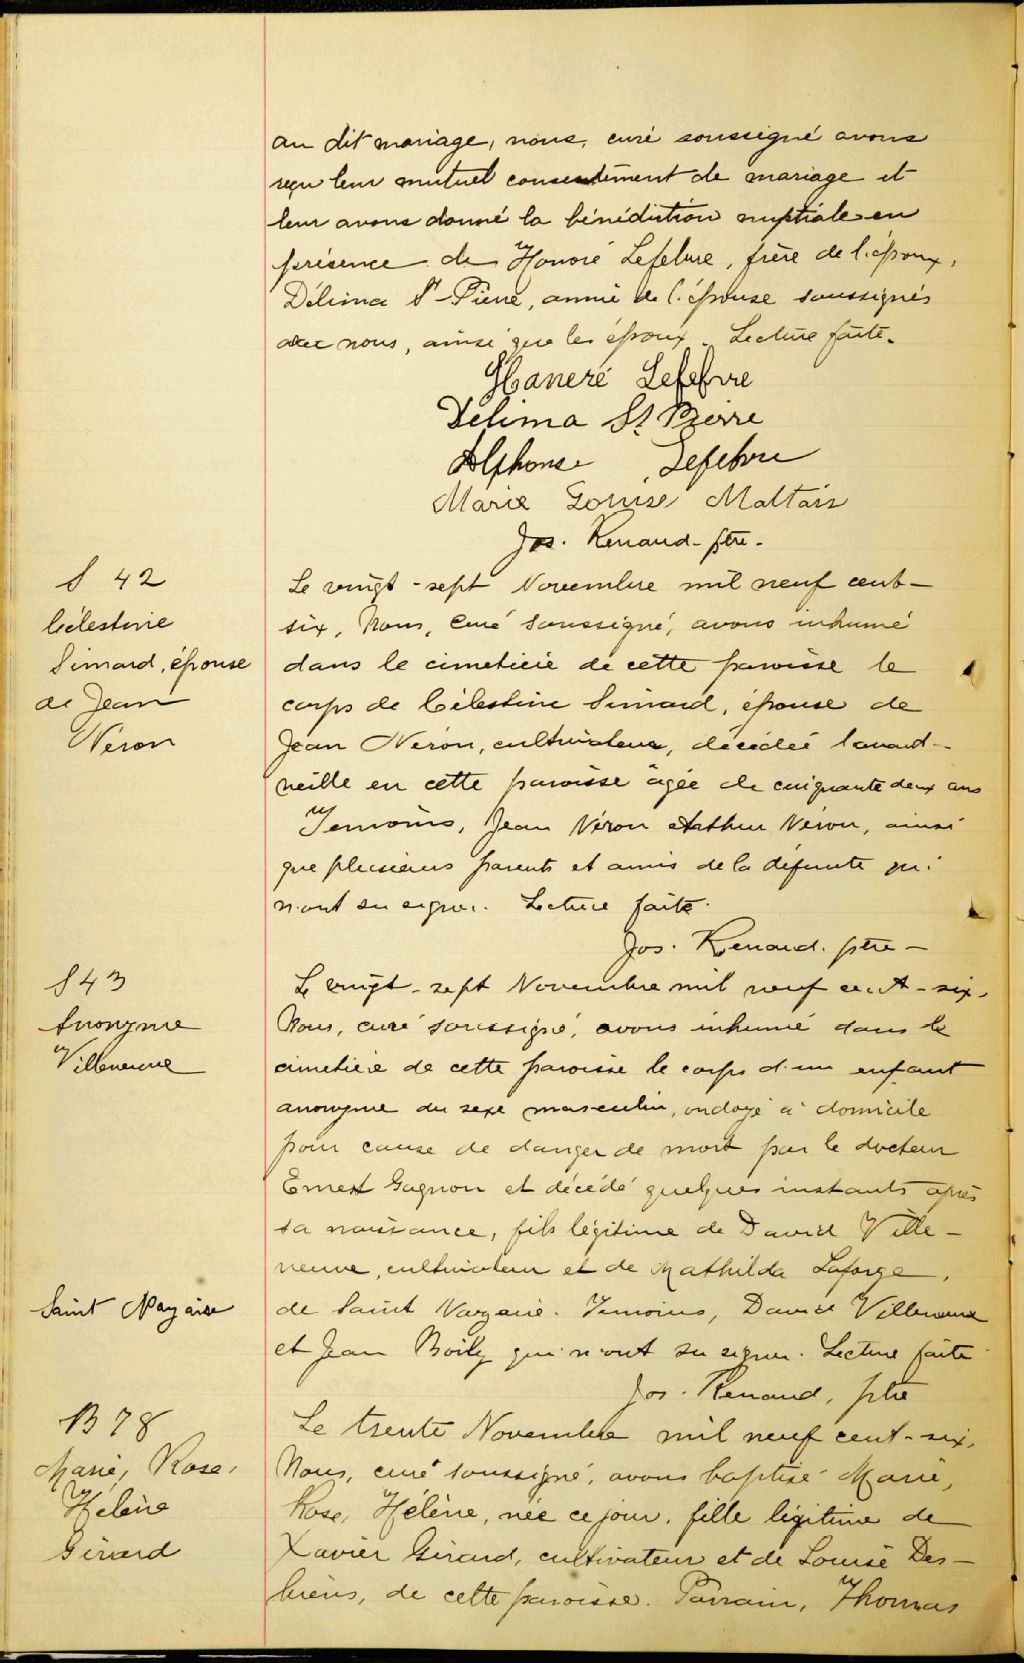 au dit mariage, nous, curé soussigné avons
reçu leur mutuel consentement de mariage et
leur avons donné la bénédiction nuptiale en
présence de Honoré Lefebvre, frère de l'époux,
Délima St-Pierre, amie de l'épouse soussignés
avec nous, ainsi que les époux. Lecture faite.
Haneré Lefebvre
Délima St Pierre
Alphonse Lefebvre
Marie Louise Maltais
Jos. Renaud ptre.
S 42
Célestine
Simard, épouse
de Jean
Néron
Le vingt-sept Novembre mil neuf cent-
six, Nous, Curé soussigné, avons inhumé
dans le cimetière de cette paroisse le
corps de Célestine Simard, épouse de
Jean Néron, cultivateur, décédée l'avant-
veille en cette paroisse âgée de cinquante deux ans
Temoins, Jean Néron Arthur Néron, ainsi
que plusieurs parents et amis de la défunte qui
n'ont su signer. Lecture faite.
Jos. Renaud. ptre -
S 43
Anonyme
Villeneuve
Le vingt-sept Novembre mil neuf cent-six,
Nous, curé soussigné, avons inhumé dans le
cimetière de cette paroisse le corps d'un enfant
anonyme du sexe masculin, ondoyé à domicile
pour cause de danger de mort par le docteur
Ernest Gagnon et décédé quelques instants après
sa naissance, fils légitime de David Ville-
neuve, cultivateur et de Mathilda Laforge,
Saint Nazaire
de Saint Nazaire. Temoins, David Villeneuve
et Jean Boily qui n'ont su signer. Lecture faite
Jos. Renaud, ptre
B 78
Marie, Rose,
Hélène
Girard
Le trente Novembre mil neuf cent-six,
Nous, curé soussigné, avons baptisé Marie,
Rose, Hélène, née ce jour, fille légitime de
Xavier Girard, cultivateur et de Louise Des-
biens, de cette paroisse. Parrain, Thomas